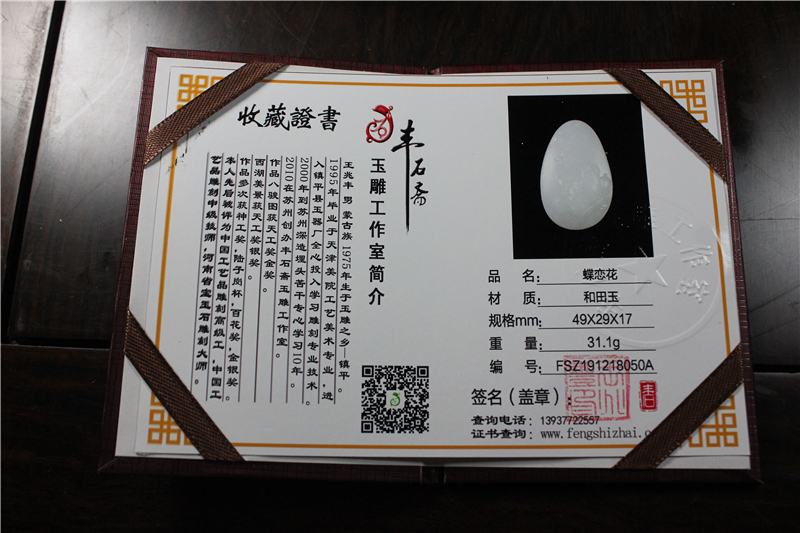 收藏證書
丰石斋
玉雕工作室简介
王兆丰 男 蒙古族 1975年生于玉雕之乡—镇平。
1995年毕业于天津美院工艺美术专业，进
入镇平县玉器厂全心投入学习雕刻专业技术。
2000年到苏州深造埋头苦干专心学习10年。
2010在苏州创办丰石斋玉雕工作室。
作品八骏图获天工奖金奖。
西湖美景获天工奖银奖。
作品多次获神工奖，陆子岗杯，百花奖，金银奖。
本人先后被评为中国工艺品雕刻高级工，中国工
艺品雕刻中级技师，河南省宝玉石雕刻大师。
品 名： 蝶恋花
材 质： 和田玉
规格mm： 49X29X17
重 量： 31.1g
编 号： FSZ191218050A
签名（盖章）：
查询电话：13937722557
证书查询：www.fengshizhai.c